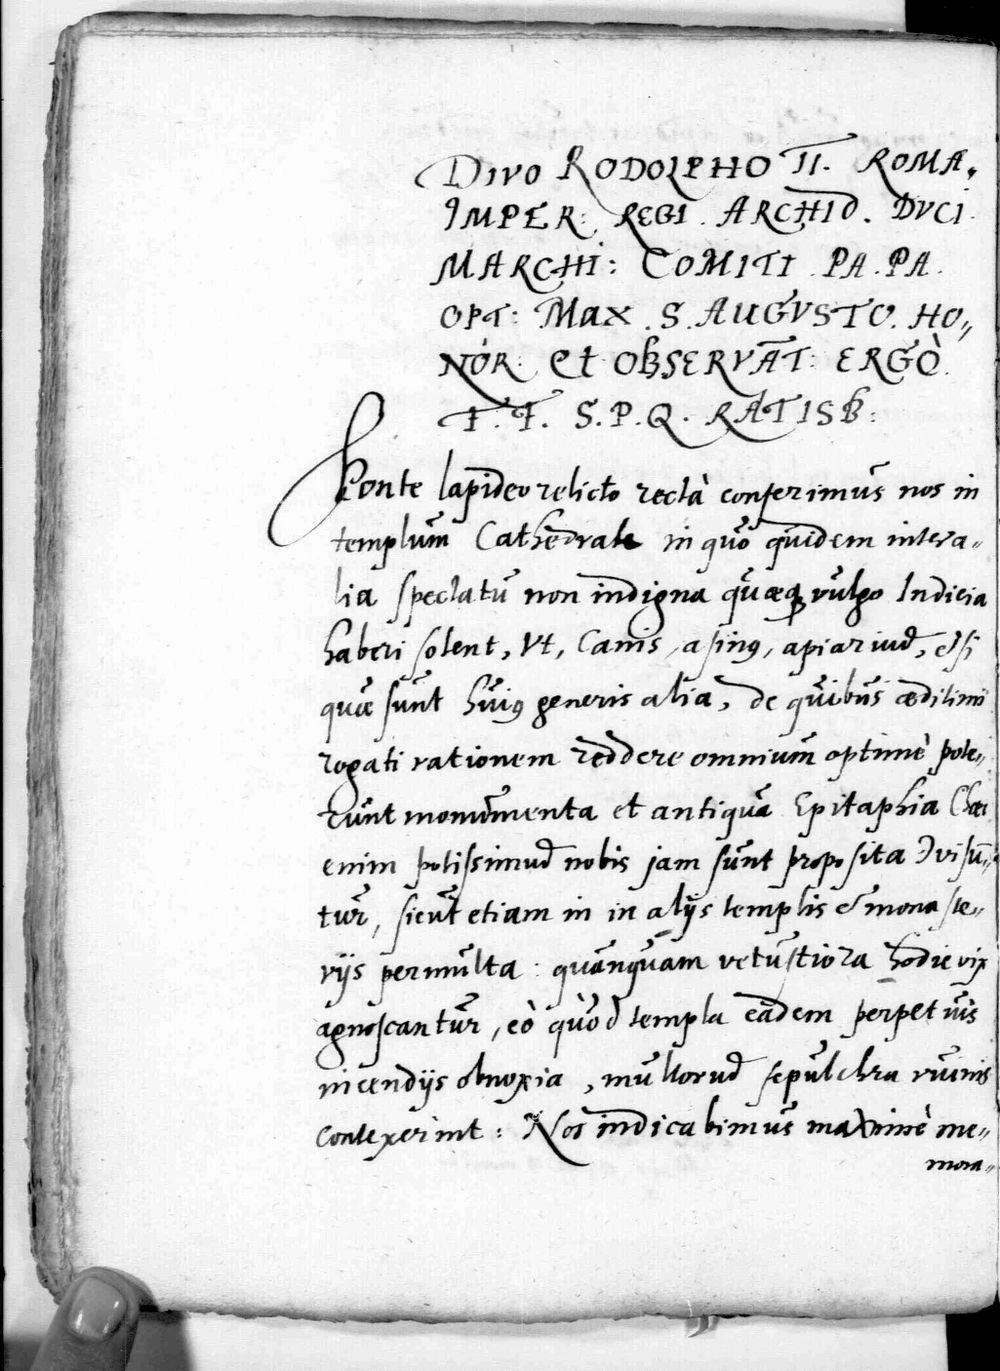 DIVO RODOLPHO II. ROMA.
IMPER: REGI. ARCHID. DVCI.
MARCHI: COMITI. PA. PA.
OPT: MAX. S. AUGVSTO. HO„
NÓR: et OBSERVAT: ERGÒ
F. F. S. P. Q. RATISB:
Ponte lapideo relicto rectà conferimus nos in
templum Cathedrale in quo quidem intera„
lia spectatu non indigna quæq vulgo Indicia
haberi solent, Vt, Canis, asin9, apiariud, et si
quæ sunt hui9 generis alia, de quibus æditimi
rogati rationem reddere omnium optimè pote„
runt monumenta et antiqua Epitaphia
enim potissimud nobis jam sunt proposita visun„
tur, sicut etiam in in alijs templis & monaste„
rijs permulta: quanquam vetustiora hodie vix
agnoscantur, eò quòd templa eadem perpetuis
incendijs obnoxia, multorud sepulchra ruinis
contexerint: Nos indicabimus maximè me„
mora„